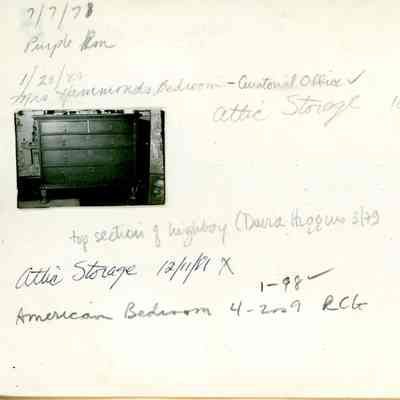 7/7/78
Purple Rm
1/20/
Mrs Hammonds Bedroom - Curatorial Office ✓
Attic Storage
top section of highboy (Dav Higgins 3/79
Attic Storage 12/11/81 X
1-98 ✓
American Bedroom 4-2009 RCG